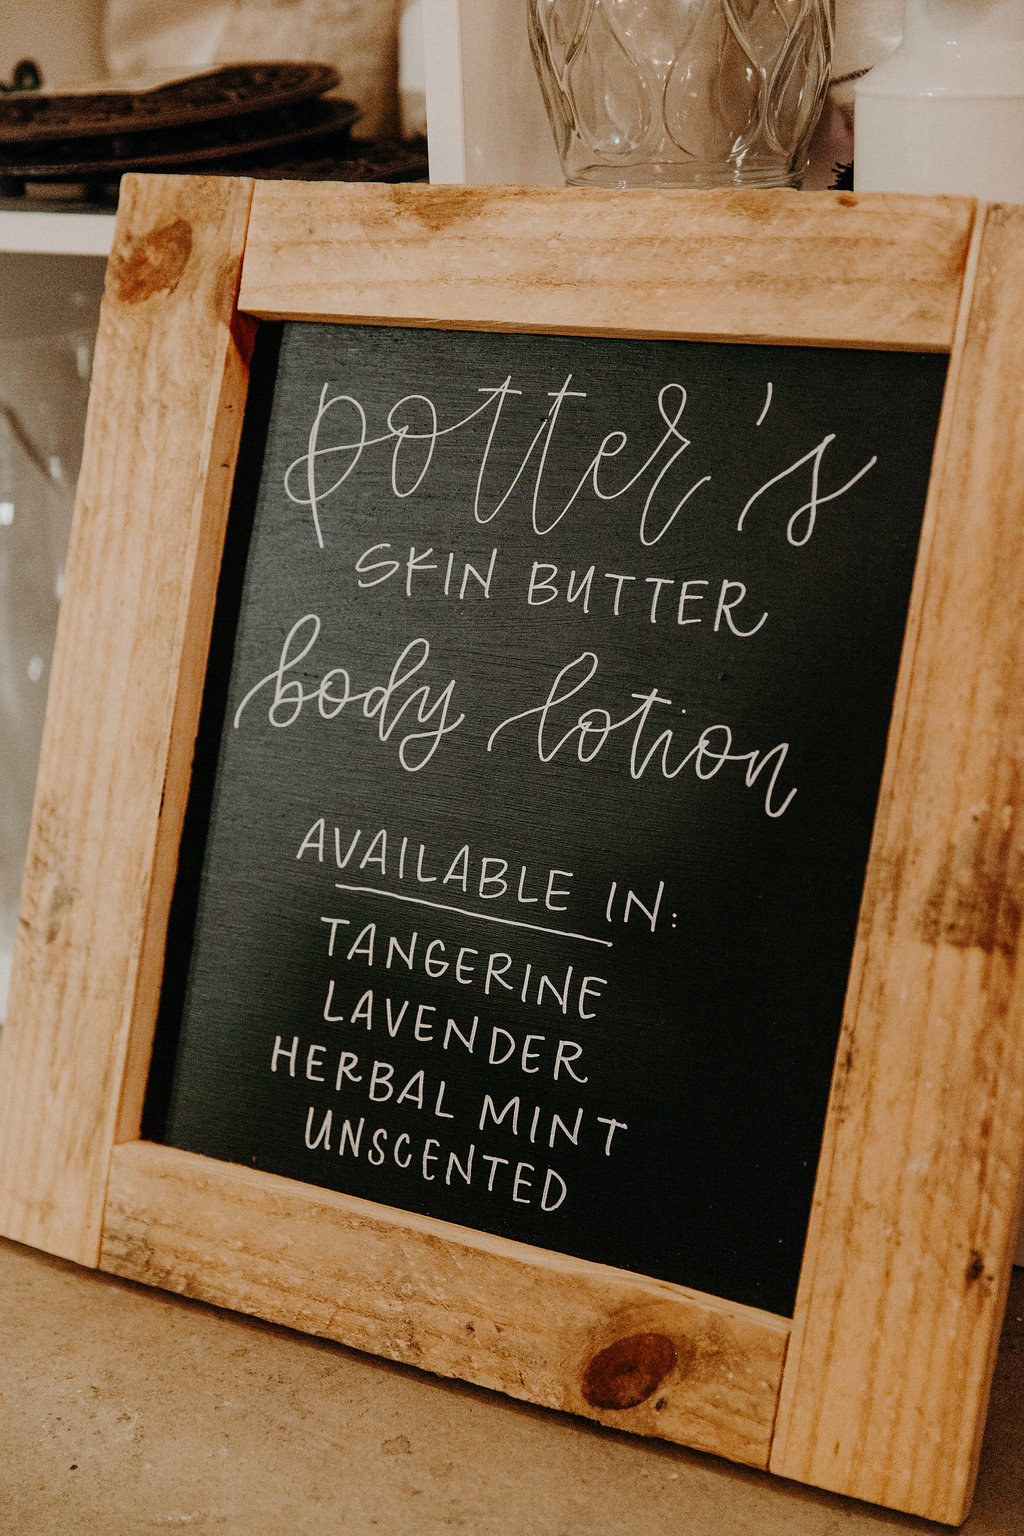 potter's
SKIN BUTTER
body lotion
AVAILABLE IN:
TANGERINE
LAVENDER
HERBAL MINT
UNSCENTED